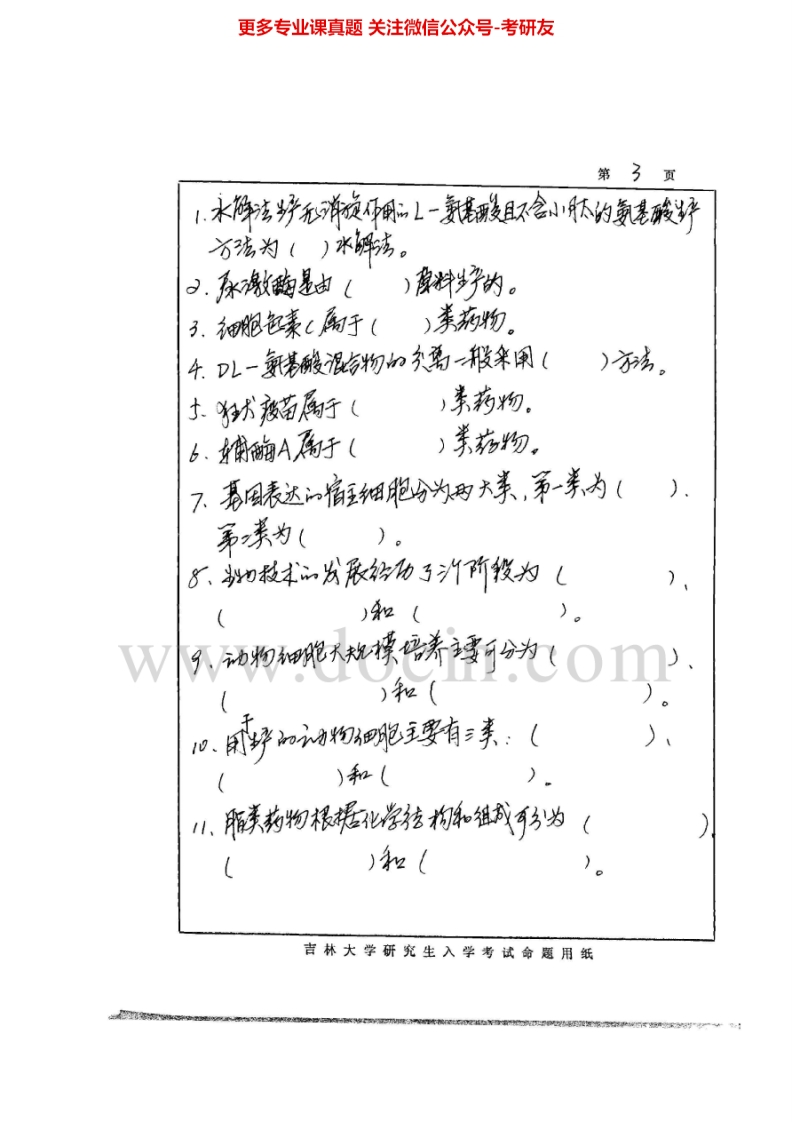 更多专业课真题 关注微信公众号-考研友
第 3 页
1. 水解法生产无消旋作用的L-氨基酸且不含小肽的氨基酸生产
方法为 ( ) 水解法。
2. 尿激酶是由 ( ) 原料生产的。
3. 细胞色素C属于 ( ) 类药物。
4. DL-氨基酸混合物的分离一般采用 ( ) 方法。
5. 狂犬疫苗属于 ( ) 类药物。
6. 辅酶A属于 ( ) 类药物。
7. 基因表达的宿主细胞分为两大类,第一类为 ( )、
第二类为 ( )。
8、生物技术的发展经历了三个阶段为 ( )、
( ) 和 ( )。
www.docin.com
9、动物细胞大规模培养主要可分为 ( )、
( ) 和 ( )。
10、用于生产的动物细胞主要有三类: ( )、
( ) 和 ( )。
11、脂类药物根据化学结构和组成可分为 ( )、
( ) 和 ( )。
吉林大学研究生入学考试命题用纸